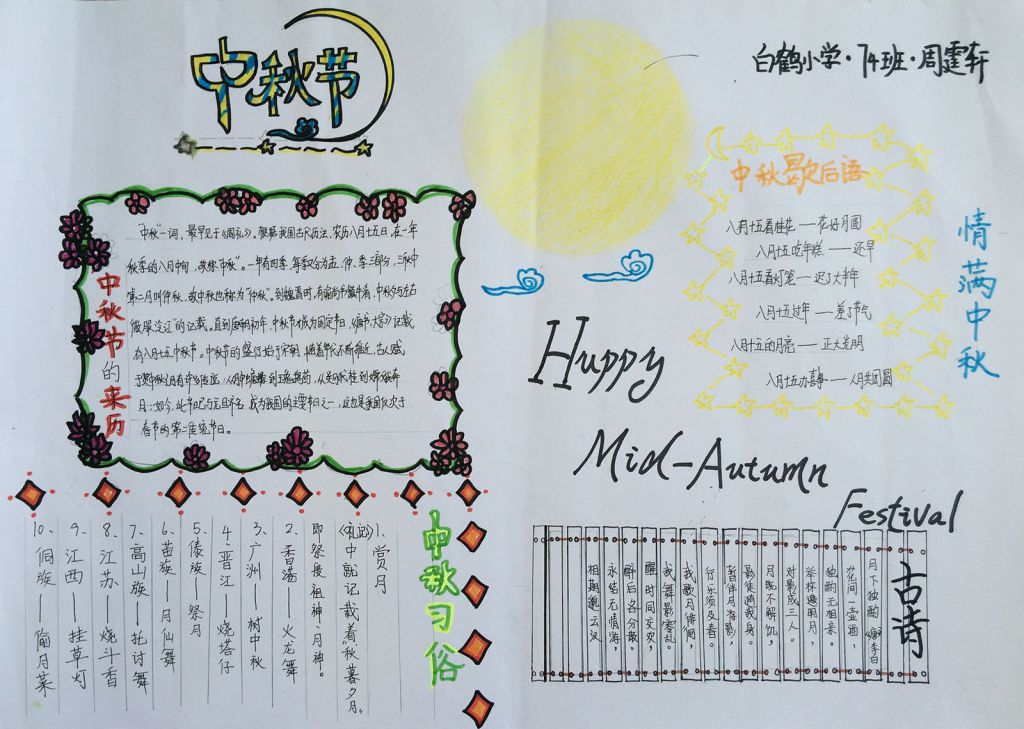 中秋节
白鹤小学·74班·周霆轩
中秋节的来历
"中秋"一词，最早见于《周礼》。根据我国古代历法，农历八月十五日，在一年
秋季的八月中旬，故称"中秋"。一年有四季，每季又分为孟、仲、季三部分，三秋中
第二月叫仲秋，故中秋也称为"仲秋"。到魏晋时，有
微服泛江"的记载。直到唐朝初年，中秋节才成为固定节日。《唐书·太宗》记载
有八月十五中秋节。中秋节的盛行始于宋朝
月：如今，此节已与元旦齐名，成为我国的主要节日之一，这也是我国仅次于
春节的第二传统节日。
中秋歇后语
八月十五看桂花——花好月圆
八月十五吃年糕——还早
八月十五看灯笼——迟了大半年
八月十五过年——差了节气
八月十五的月亮——正大光明
八月十五办喜事——人月共团圆
情满中秋
Huppy
Mid-Autumn
Festival
中秋习俗
1、赏月
《礼记》中就记载着"秋暮夕月。"
即祭拜祖神、月神。
2、香港——火龙舞
3、广洲——树中秋
4、晋江——烧塔仔
5、傣族——祭月
6、苗族 月仙舞
7、高山族——托讨舞
8、江苏——烧斗香
9、江西——挂草灯
10、侗族——偷月菜
古诗
月下独酌 李白
花间一壶酒，
独酌无相亲。
举杯邀明月，
对影成三人。
月既不解饮，
影徒随我身。
暂伴月将影，
行乐须及春。
我歌月徘徊，
我舞影零乱。
醒时同交欢，
醉后各分散。
永结无情游，
相期邈云汉